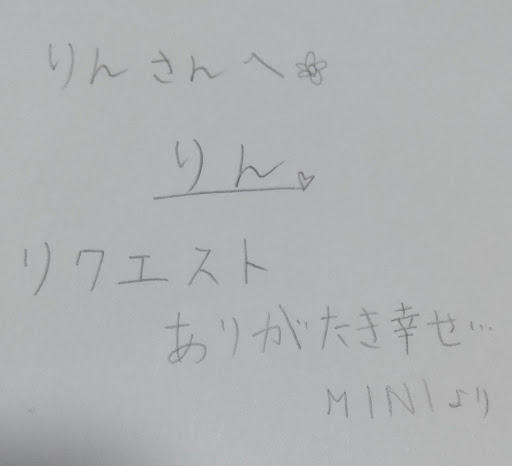 りんさんへ
りん
リクエスト
ありがたき幸せ…
MINIより